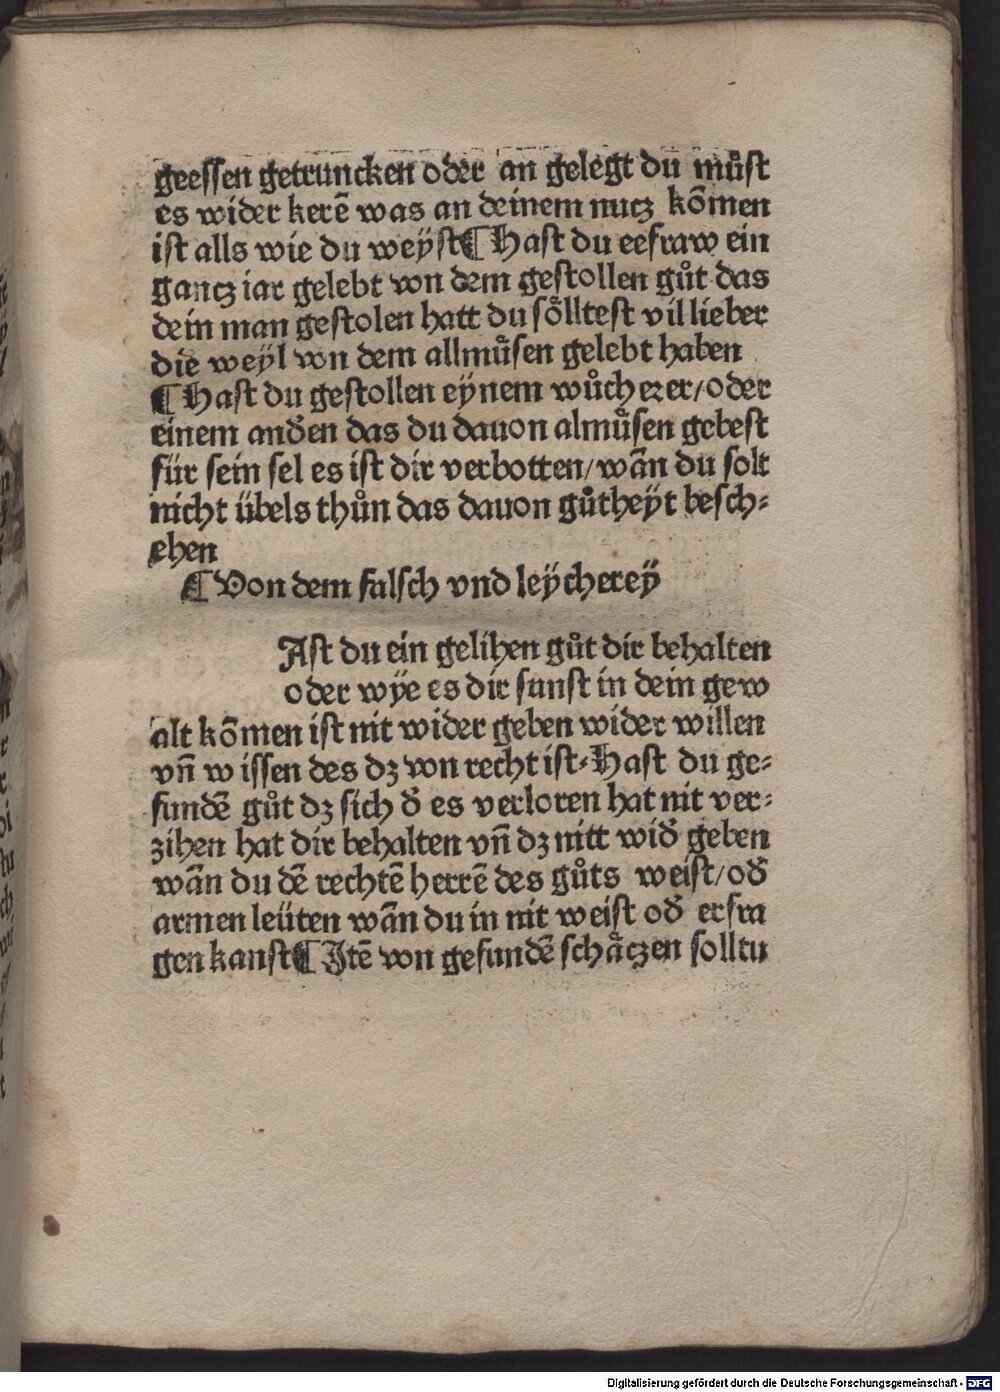 geessen getruncken oder an gelegt du můst
es wider kerē was an deinem nucz kōmen
ist alls wie du weÿst¶Hast du eefraw ein
gancz iar gelebt von dem gestollen gůt das
dein man gestolen hatt du soͤlltest vil lieber
die weÿl von dem allmuͤsen gelebt haben
¶Hast du gestollen eÿnem wůcherer/oder
einem andēn das du dauon almuͤsen gebest
für sein sel es ist dir verbotten/wān du solt
nicht übels thůn das dauon gůtheÿt besch⸗
ehen
¶Von dem falsch vnd leÿcherey
Ast du ein gelihen gůt dir behalten
oder wÿe es dir sunst in dein gew
alt kōmen ist nit wider geben wider willen
vn̄ wissen des dz von recht ist⸗Hast du ge⸗
fundē gůt dz sich d̄ es verloren hat nit ver⸗
zihen hat dir behalten vn̄ dz nitt wid̄ geben
wān du dē rechtē herrē des gůts weist/od̄
armen leüten wān du in nit weist od̄ erfra
gen kanst¶Jtē von gefundē schaͤczen solltu
Digitalisierung gefördert durch die Deutsche Forschungsgemeinschaft - DFG